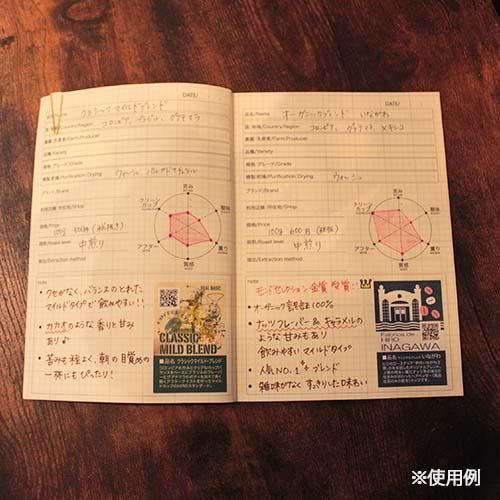 DATE/
品名/Name クラシックマイルドブレンド
国、地域/Country/Region コロンビア、ブラジル、グアテマラ
農園、生産者/Farm/Producer
品種/Variety
規格、グレード/Grade
精製/乾燥/Purification/Drying ウォッシュ
ブランド/Brand
利用店舗(所在地)/Shop
価格/Price 100g
焙煎/Roast level 中煎り
抽出/Extraction method
苦み
酸味
香り
質感
アフター
クリーンカップ
Note
• クセがなく、バランスのとれた
マイルドタイプで飲みやすい!!
• カカオのような香りと甘み
あり♪
• 苦みも程よく、朝の目覚めの
一杯にもぴったり!
REAL BASIC
CLASSIC
MILD BLEND
■品名 クラシックマイルド・ブレンド
DATE/
品名/Name オーガニックブレンド いながわ
国、地域/Country/Region コロンビア、グァテマラ、メキシコ
農園、生産者/Farm/Producer
品種/Variety
規格、グレード/Grade
精製/乾燥/Purification/Drying ウォッシュ
ブランド/Brand
利用店舗(所在地)/Shop
価格/Price 100g 600円(税抜)
焙煎/Roast level 中煎り
抽出/Extraction method
苦み
酸味
香り
質感
アフター
クリーンカップ
Note
モンドセレクション金賞受賞!!
• オーガニック認証豆100%
• ナッツフレーバー&キャラメルの
ような甘みもあり
飲みやすいマイルドタイプ
• 人気NO.1ブレンド
• 雑味がなくすっきりした味わい
Fabbrica de
HIRO
INAGAWA
■品名 オーガニックブレンド いながわ
※使用例